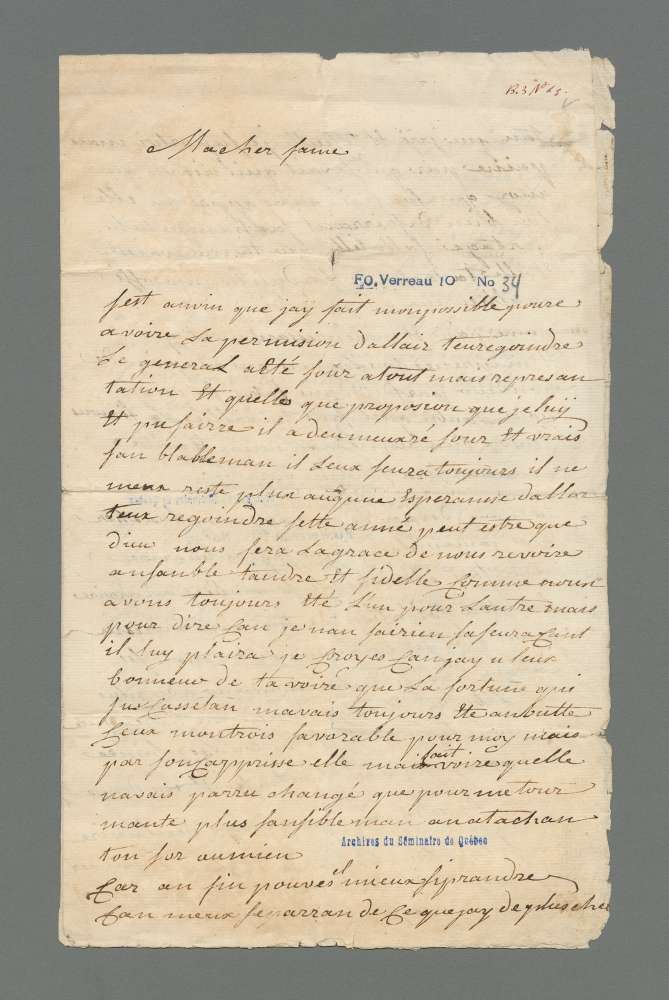 B.3 No 25.
Macher fame
FO. Verreau 10 No 34
sest anvin que jay fait monpossible poure
avoire La permision dallair teuregoindre
Le general aEté sour atout mais represan
tation Et quelle que proposion que je luy
Et pu fairre il a deumeuré sour Et vrais
san blableman il Leux seura toujours il ne
meux reste plux auqune Esperanse dallor
teux regoindre sette anné peut estre que
dieu nous fera Lagrace de nous revoire
ansanble tandre Et fidelle Comme nous
avons toujours Eté L'un pour Lautre mais
pour dire Can je nan sairien sa seura Cant
il luy plaira je Croyes Canjay u leux
bonneur de ta voire que La fortune qui
jus Cassetan mavais toujours Ete anbutte
Ceux montrois favorable pour moy mais
par son Capprisse elle mais fait voire quelle
navais parru changé que pour me tour
mante plus sansible man anatachan
ton sor aumien
Archives du Séminaire de Québec
Car an fin pouves il mieux siprandre
Can meux separran de Ce que jay de plus cher